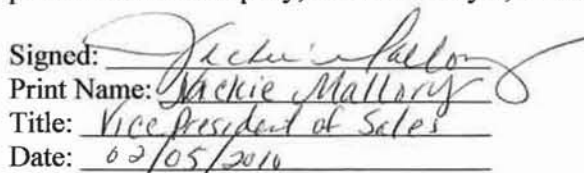 Signed: Jackie Mallory
Print Name: Jackie Mallory
Title: Vice President of Sales
Date: 02/05/2010